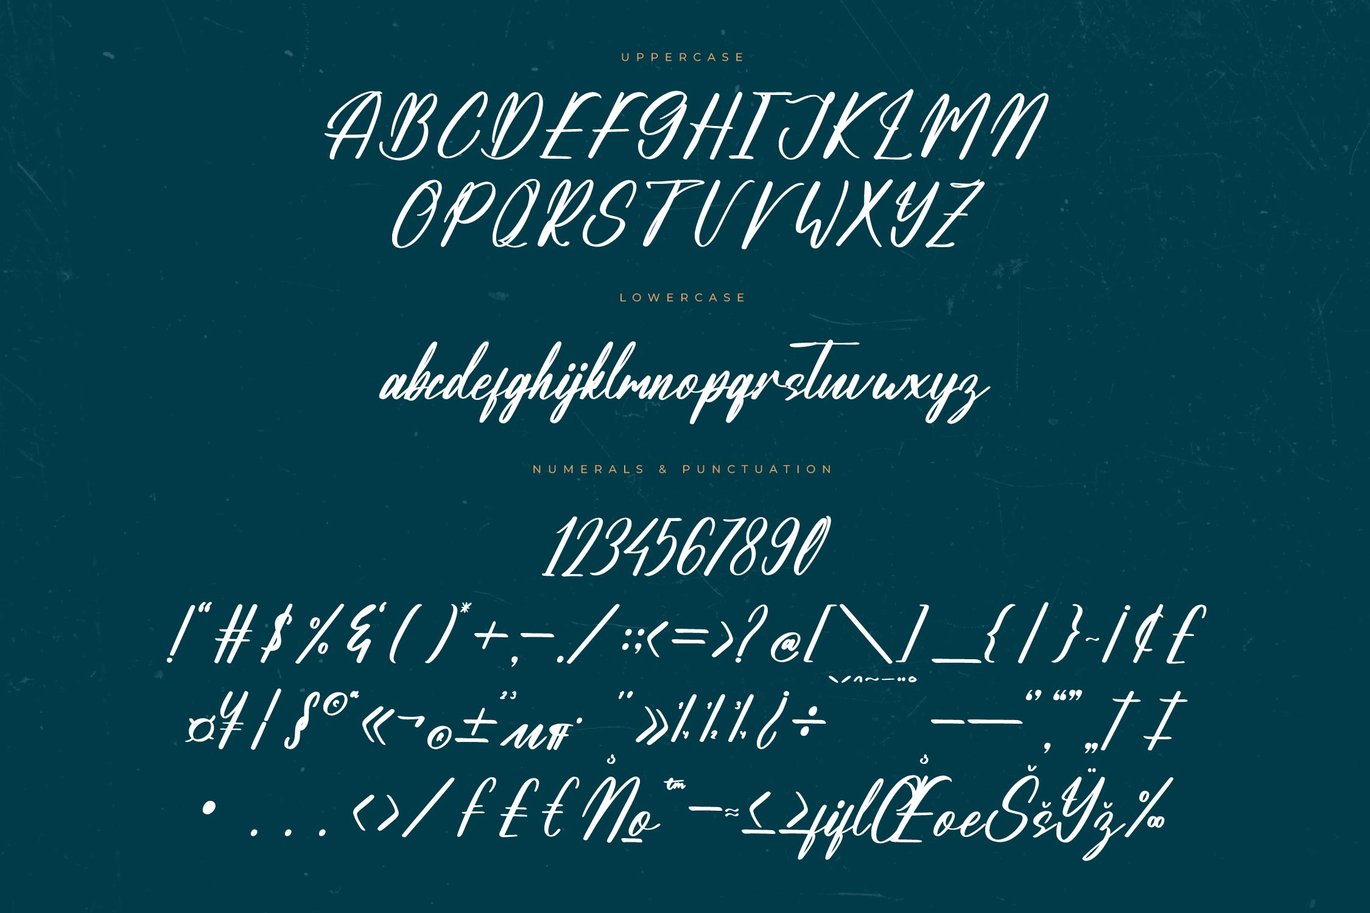 UPPERCASE
ABCDEFGHIJKLMN
OPQRSTUVWXYZ
LOWERCASE
abcdefghijklmnopqrstuvwxyz
NUMERALS & PUNCTUATION
1234567890
!"#$%&'()*+,-./:;<=>?@[\]_{|}~¡¢£
¤¥¦§©ª«¬®±²³µ¶·¸¹º»¼½¾¿÷ –—‘’‚“”„†‡
•...‹›⁄₣₤€№™−≈≤≥fifl ŒœŠšŸž‰